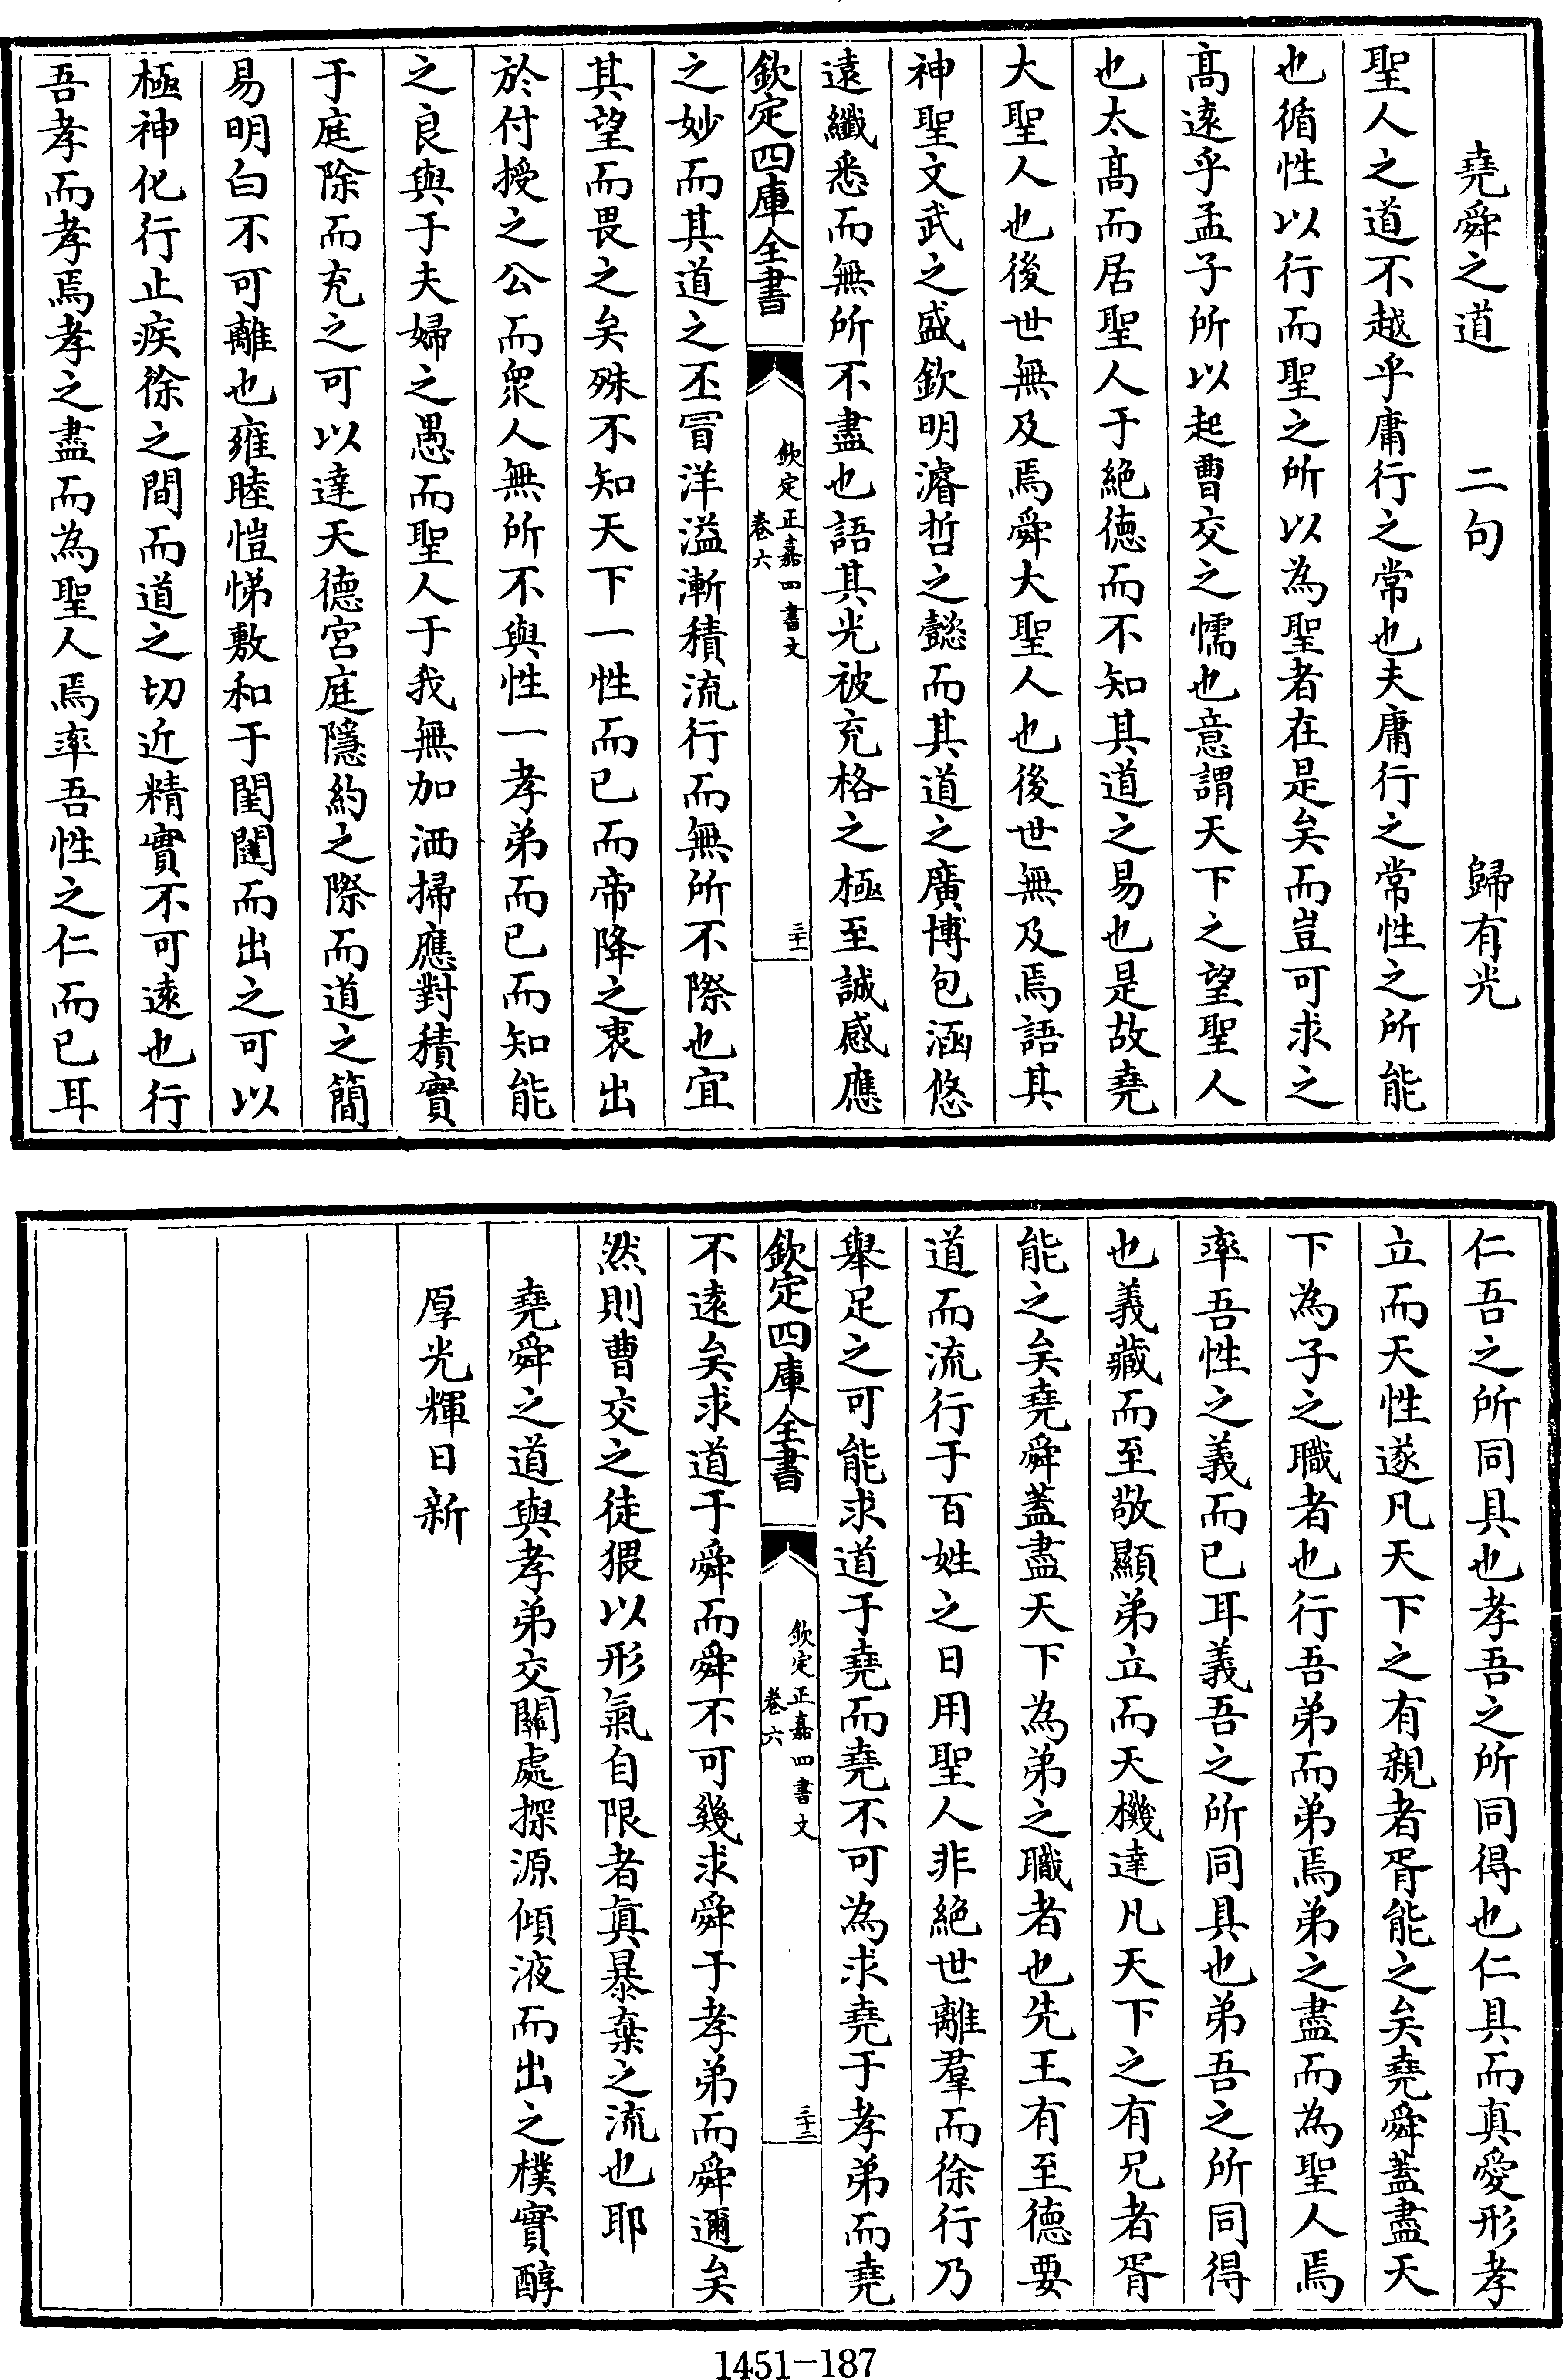 堯舜之道　二句　歸有光
聖人之道不越乎庸行之常也夫庸行之常性之所能
也循性以行而聖之所以為聖者在是矣而豈可求之
髙遠乎孟子所以起曹交之懦也意謂天下之望聖人
也太髙而居聖人于絶德而不知其道之易也是故堯
大聖人也後世無及焉舜大聖人也後世無及焉語其
神聖文武之盛欽明濬哲之懿而其道之廣博包涵悠
遠纖悉而無所不盡也語其光被充格之極至誠感應
欽定四庫全書
欽定正嘉四書文
卷六
三十一
之妙而其道之丕冒洋溢漸積流行而無所不際也宜
其望而畏之矣殊不知天下一性而已而帝降之衷出
於付授之公而衆人無所不與性一孝弟而已而知能
之良與于夫婦之愚而聖人于我無加洒掃應對積實
于庭除而充之可以達天德宮庭隱約之際而道之簡
易明白不可離也雍睦愷悌敷和于閨闥而出之可以
極神化行止疾徐之間而道之切近精實不可遠也行
吾孝而孝焉孝之盡而為聖人焉率吾性之仁而已耳
仁吾之所同具也孝吾之所同得也仁具而真愛形孝
立而天性遂凡天下之有親者胥能之矣堯舜蓋盡天
下為子之職者也行吾弟而弟焉弟之盡而為聖人焉
率吾性之義而已耳義吾之所同具也弟吾之所同得
也義藏而至敬顯弟立而天機達凡天下之有兄者胥
能之矣堯舜蓋盡天下為弟之職者也先王有至德要
道而流行于百姓之日用聖人非絶世離羣而徐行乃
舉足之可能求道于堯而堯不可為求堯于孝弟而堯
欽定四庫全書
欽定正嘉四書文
卷六
三十二
不遠矣求道于舜而舜不可幾求舜于孝弟而舜邇矣
然則曹交之徒猥以形氣自限者真暴棄之流也耶
堯舜之道與孝弟交關處探源傾液而出之樸實醇
厚光輝日新
1451-187